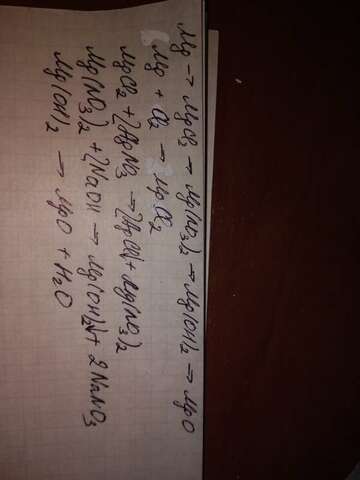 Mg → MgCl2 → Mg(NO3)2 → Mg(OH)2 → MgO
Mg + Cl2 → MgCl2
MgCl2 + 2AgNO3 → 2AgCl↓ + Mg(NO3)2
Mg(NO3)2 + 2NaOH → Mg(OH)2↓ + 2NaNO3
Mg(OH)2 → MgO + H2O